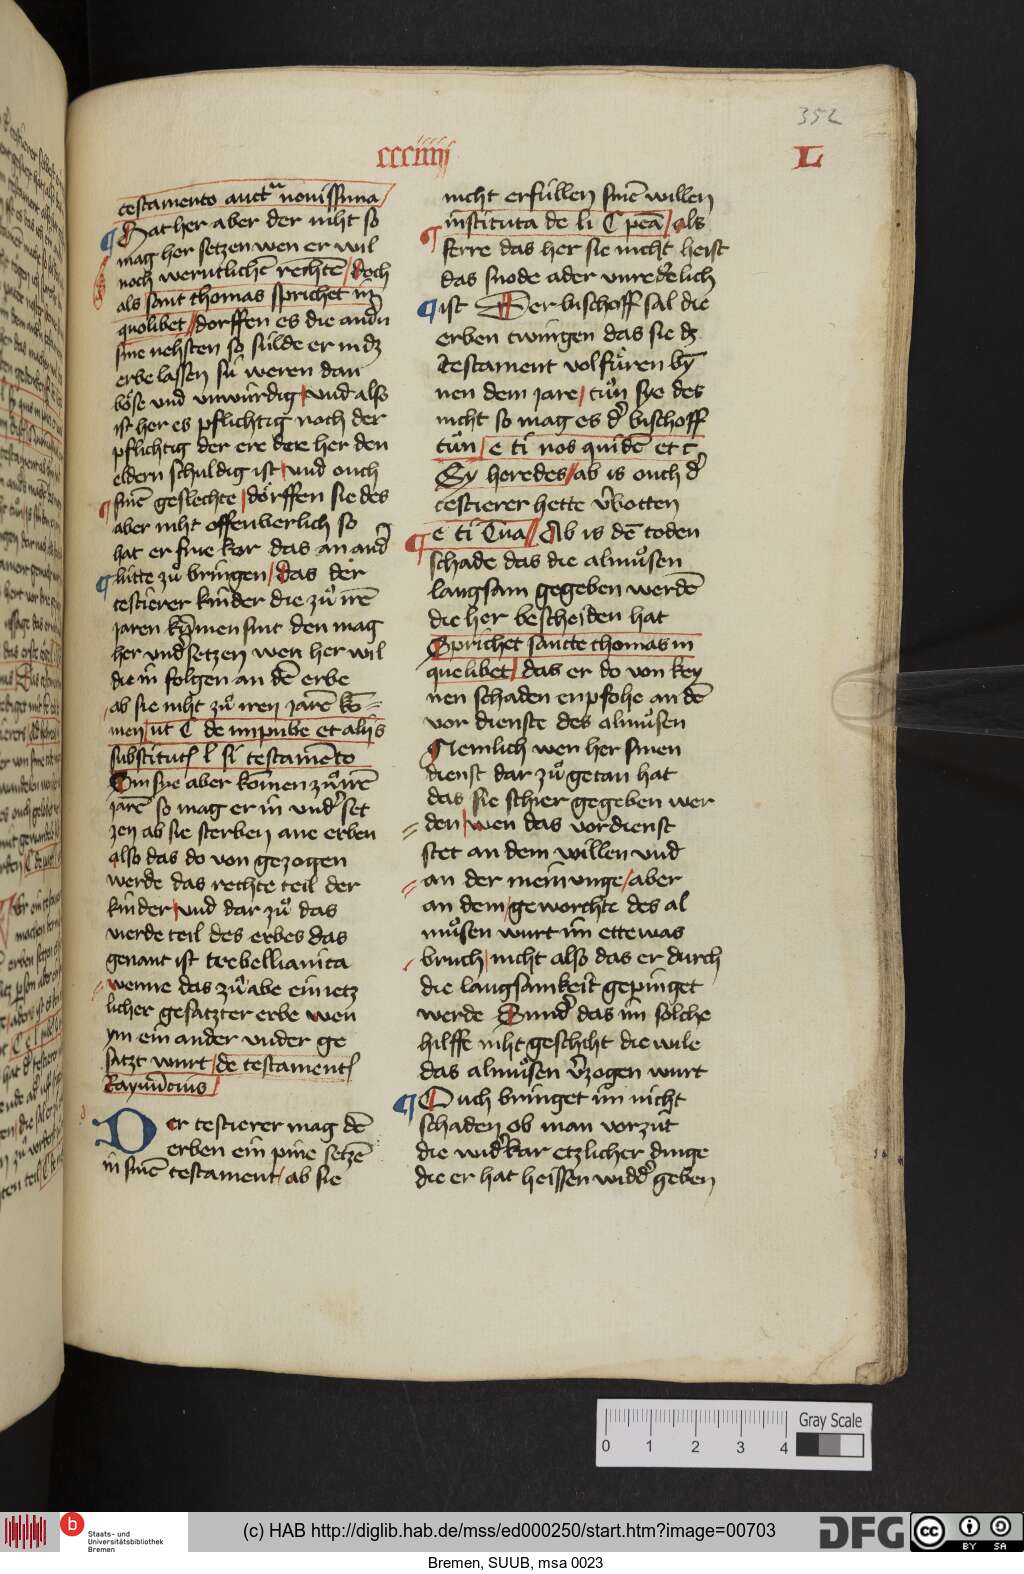 352
ccciiii
L
testamento auctᵃ nouissima
Hat her aber der niht so
mag her setzen wen er wil
noch werntlichē rechtē / doch
als sant thomas sprichet in
quolibet // dorffen es die andn
sine nehsten so sulde er in dz
erbe lassen su weren dan
böse vnd vnwirdig / vnd also
ist her es pflichtig noch der
pflichtig der ere die her den
eldern schuldig ist / vnd ouch
sinē geslechte / dörffen sie des
aber niht offenberlich so
hat er frie kor das an and
lutte zů bringen / das der
testierer kinder die zů irē
jaren kymen sint den mag
her vnd setzen wen her wil
die in folgen an dē erbe
ab sie niht zů iren jarē ko=
men / ut C de impube et alijs
substitut l si testamēto
Sin sye aber komen zů irē
jarē so mag er in vnd set
zen ab sie sterben ane erben
also das do von gezogen
werde das rechte teil der
kinder / vnd dar zů das
vierde teil des erbes das
genant ist trebellianica
wenne das zů abe ein ietz
licher gesatzter erbe wen
ym ein ander vnder ge
satzt wurt / de testament
Raymūcius
Der testierer mag dē
erben ein pine setzē
in sinē testament / ab sie
nicht erfüllen sinē willen
instituta de li C peā / als
ferre das her sie nicht heist
das snode ader vnredelich
ist Der bischoff sal die
erben twingen das sie dz
Testament volfüren by
nen dem jare / tůn sye des
nicht so mag es d bischoff
tůn / e ti nos quidē et c
Sy heredes // ab is ouch d
testierer hette vbotten
e ti Tua // Ab is dē toden
schade das die almůsen
langsam gegeben werdē
die her bescheiden hat
Sprichet sancte thomas in
quelibet / das er do von key
nen schaden enpfohe an dē
vor dienste des almůsen
Nemlich wen her sinen
dienst dar zů getan hat
das sie schier gegeben wer
den / wen das vordienst
stet an dem willen vnd
an der meinunge / aber
an dem / geworchte des al
můsen wurt im ettewas
bruch / nicht also das er durch
die langsamkeit gepinget
werde Sund das im solche
hilffe niht geschiht die wile
das almůsen vzogen wurt
Ouch bringet im nicht
schaden ob man vorzüt
die widkar etzlicher dinge
die er hat heissen widd geben
Gray Scale
0 1 2 3 4
Staats- und
Universitätsbibliothek
Bremen
(c) HAB http://diglib.hab.de/mss/ed000250/start.htm?image=00703
DFG
cc BY SA
Bremen, SUUB, msa 0023